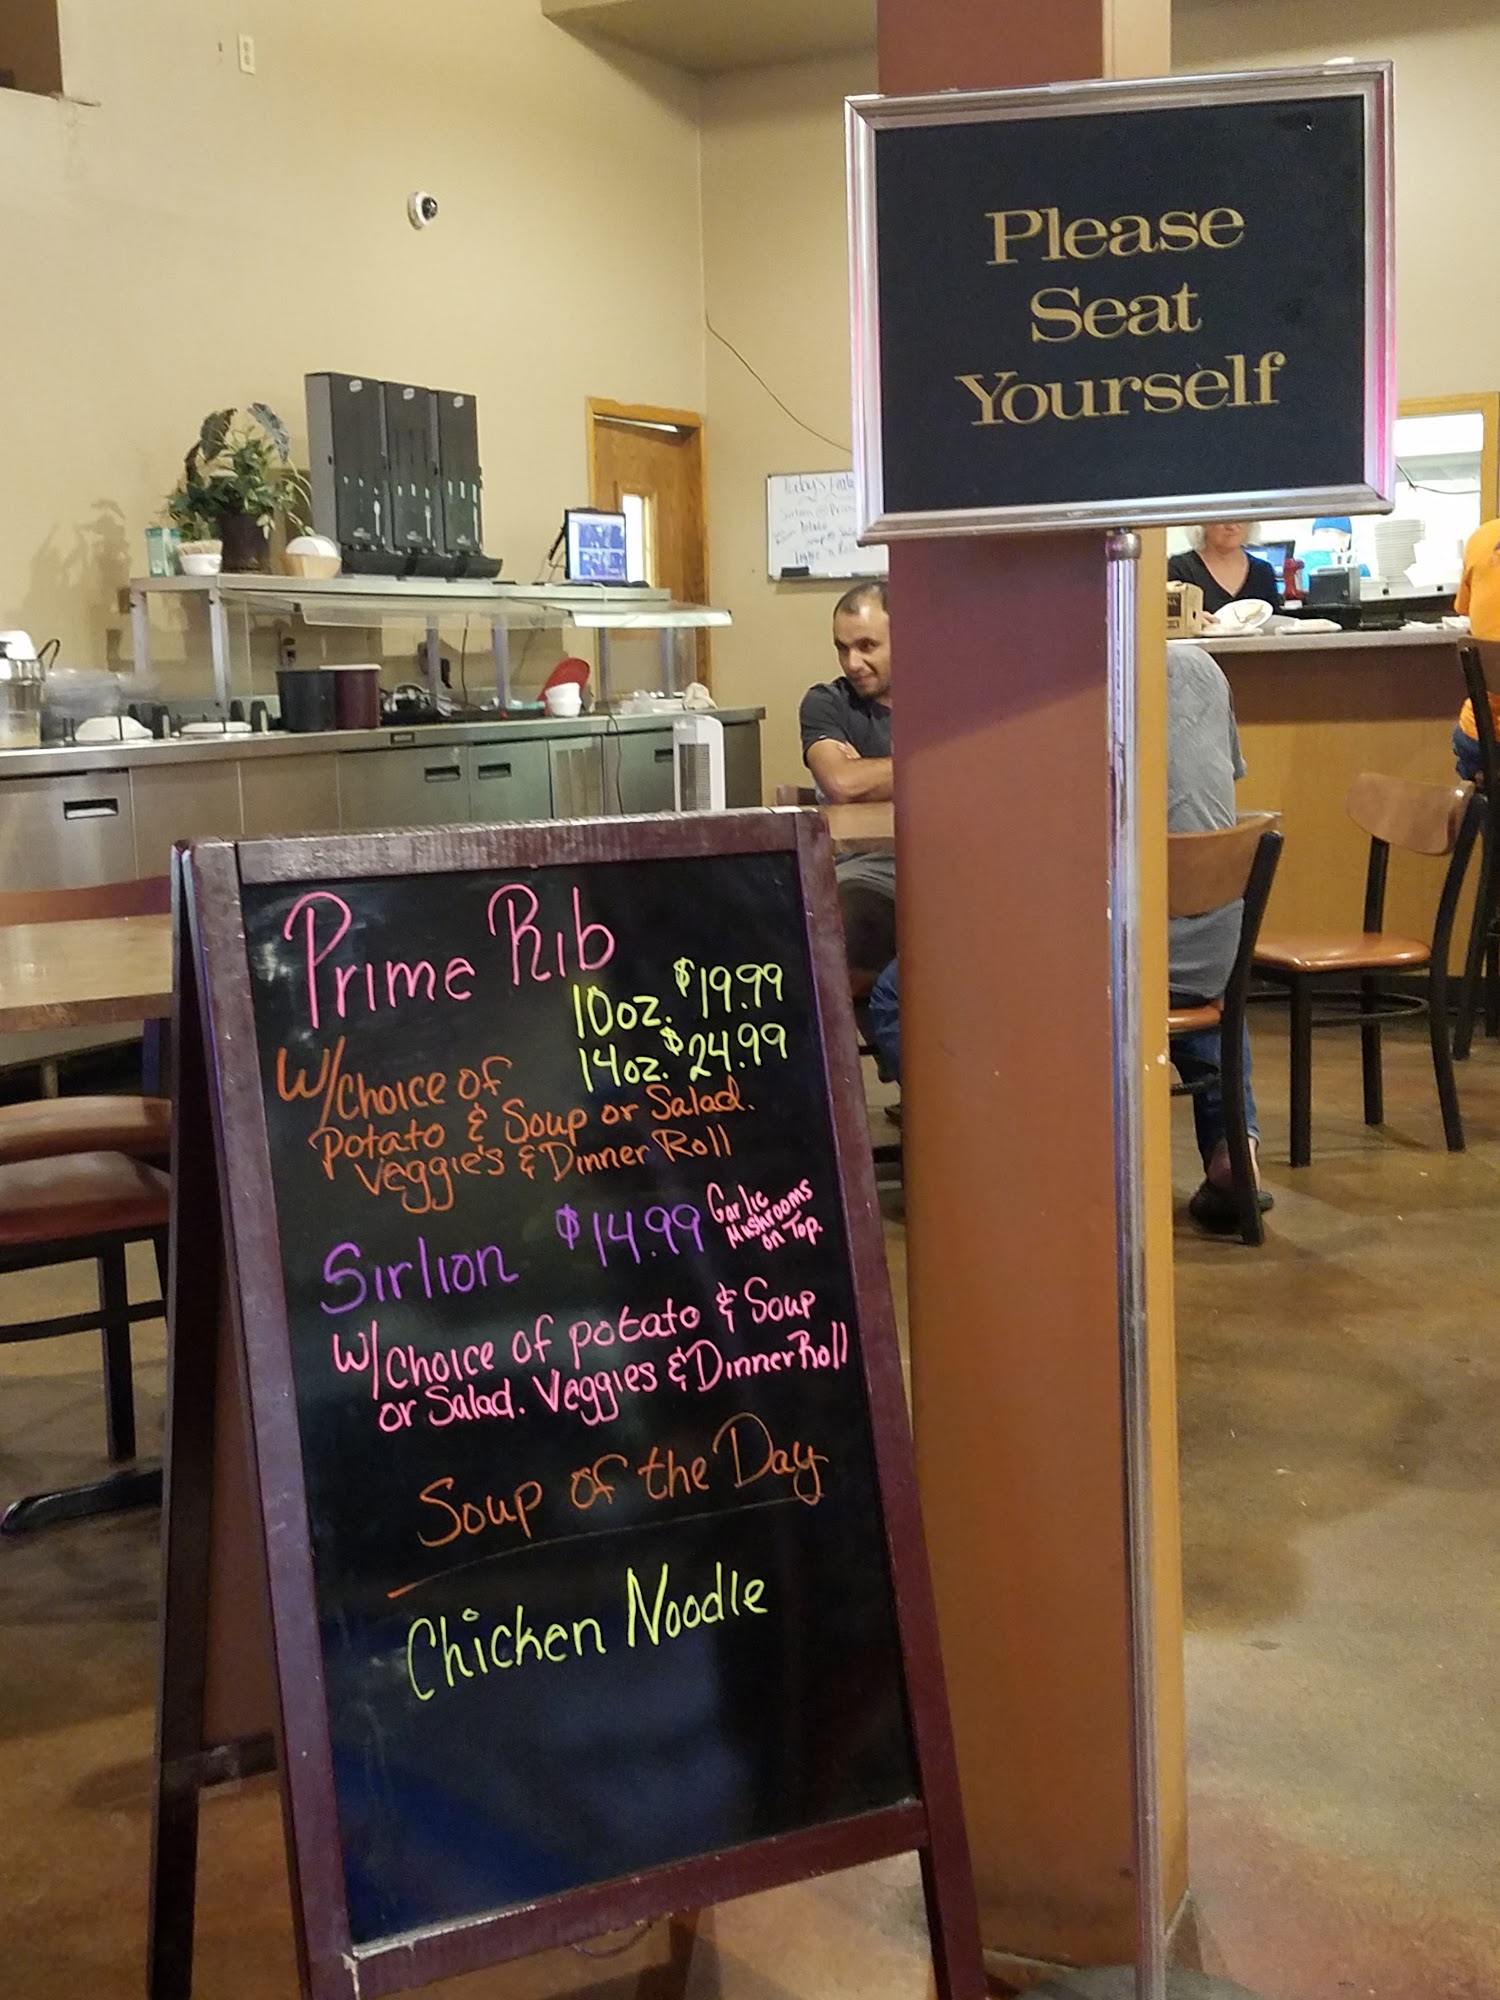 Please
Seat
Yourself
Prime Rib
10oz. $19.99
14oz. $24.99
W/Choice of
Potato & Soup or Salad.
Veggie's & Dinner Roll
Sirlion $14.99
Garlic
Mushrooms
on Top.
W/Choice of potato & Soup
or Salad. Veggies & Dinner Roll
Soup of the Day
Chicken Noodle
Today's
Potato